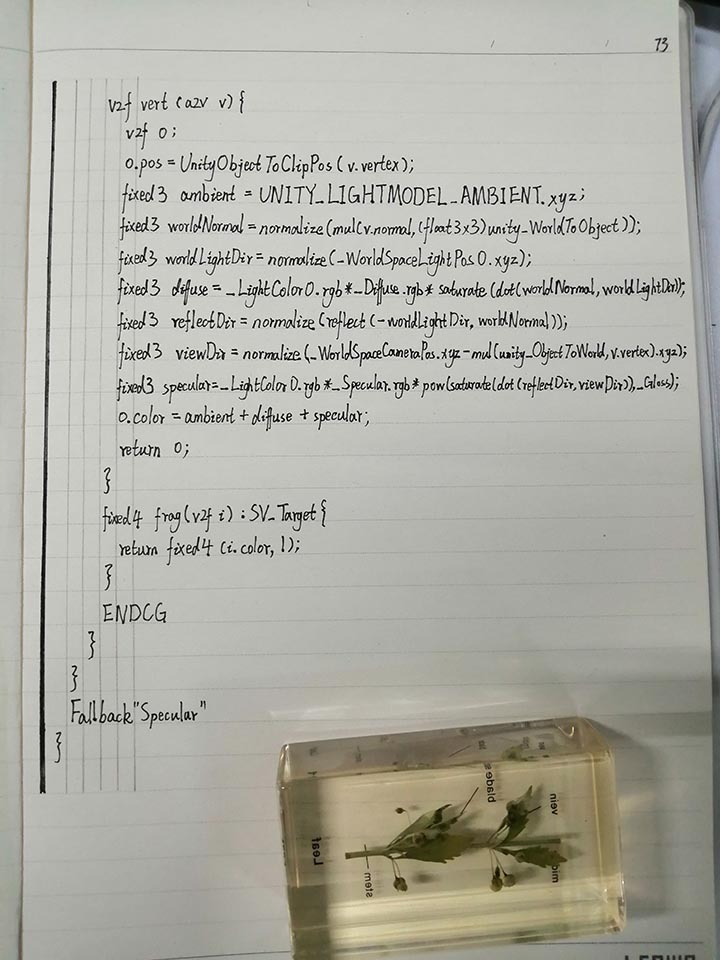 73
v2f vert (a2v v) {
v2f o;
o.pos = UnityObjectToClipPos (v.vertex);
fixed3 ambient = UNITY_LIGHTMODEL_AMBIENT.xyz;
fixed3 worldNormal = normalize(mul(v.normal, (float3x3)unity_WorldToObject));
fixed3 worldLightDir = normalize(_WorldSpaceLightPos0.xyz);
fixed3 diffuse = _LightColor0.rgb*_Diffuse.rgb* saturate (dot(worldNormal, worldLightDir));
fixed3 reflectDir = normalize (reflect (-worldLightDir, worldNormal));
fixed3 viewDir = normalize (_WorldSpaceCameraPos.xyz-mul(unity_ObjectToWorld, v.vertex).xyz);
fixed3 specular=_LightColor0.rgb*_Specular.rgb* pow(saturate(dot(reflectDir, viewDir)),_Gloss);
o.color = ambient + diffuse + specular;
return o;
}
fixed4 frag(v2f i) : SV_Target{
return fixed4 (i.color, 1);
}
ENDCG
}
}
Fallback"Specular"
}
Leaf
stem
blade
vein